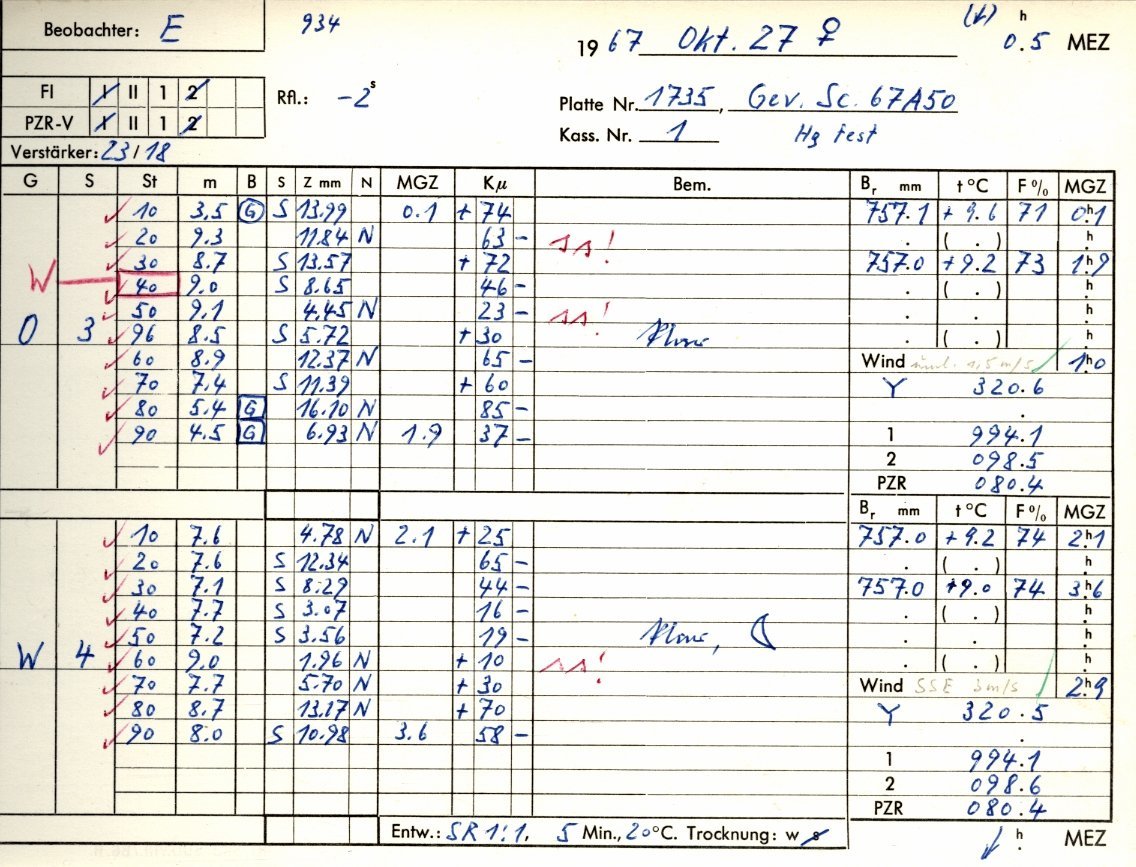 Beobachter: E 934 (↓) h
1967 Okt. 27 ♀ 0.5 MEZ
FI I II 1 2 Rfl.: -2s Platte Nr. 1735, Gev. Sc. 67A50
PZR-V I II 1 2 Kass. Nr. 1 Hg fest
Verstärker: 23/18
G S St m B S Z mm N MGZ Kμ Bem. Br mm t °C F % MGZ
✓ 10 3,5 G S 13.99 0.1 + 74 757.1 + 9.6 71 0h1
✓ 20 9.3 11.84 N 63 - ss! . ( . ) h
✓ 30 8.7 S 13.57 + 72 757.0 +9.2 73 1h9
W ✓ 40 9.0 S 8.65 46 - . ( . ) h
✓ 50 9.1 4.45 N 23 - ss! . . h
O 3 ✓ 96 8.5 S 5.72 + 30 . ( . ) h
✓ 60 8.9 12.37 N 65 - Wind 1,5 m/s ✓ 1h0
✓ 70 7.4 S 11.39 + 60 Y 320.6
✓ 80 5.4 G 16.10 N 85 - .
✓ 90 4.5 G 6.93 N 1.9 37 - 1 994.1
2 098.5
PZR 080.4
Br mm t °C F % MGZ
✓ 10 7.6 4.78 N 2.1 + 25 757.0 + 9.2 74 2h1
✓ 20 7.6 S 12.34 65 - . ( . ) h
✓ 30 7.1 S 8.29 44 - 757.0 +9.0 74 3h6
✓ 40 7.7 S 3.07 16 - . ( . ) h
✓ 50 7.2 S 3.56 19 - . . h
W 4 ✓ 60 9.0 1.96 N + 10 ss! . ( . ) h
✓ 70 7.7 5.70 N + 30 Wind SSE 3m/s ✓ 2h9
✓ 80 8.7 13.17 N + 70 Y 320.5
✓ 90 8.0 S 10.98 3.6 58 - .
1 994.1
2 098.6
PZR 080.4
Entw.: SR 1:1, 5 Min., 20°C. Trocknung: w s ↓ h MEZ